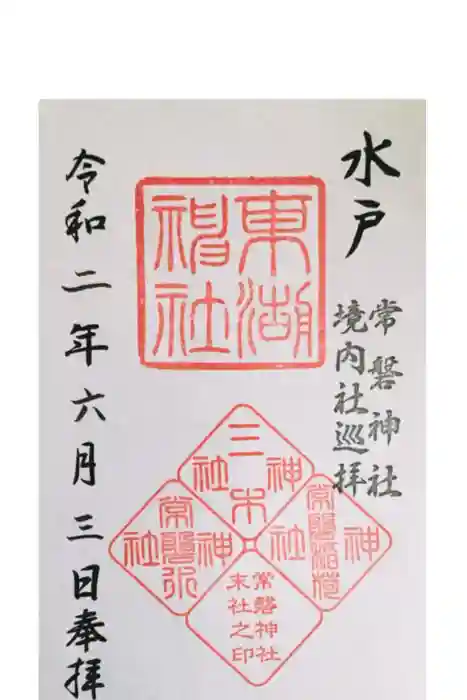 水戸
常磐神社
境内社巡拝
東湖
神社
三木
神社
常磐稲荷
神社
常磐
神社
常磐神社
末社之印
令和二年六月三日奉拝